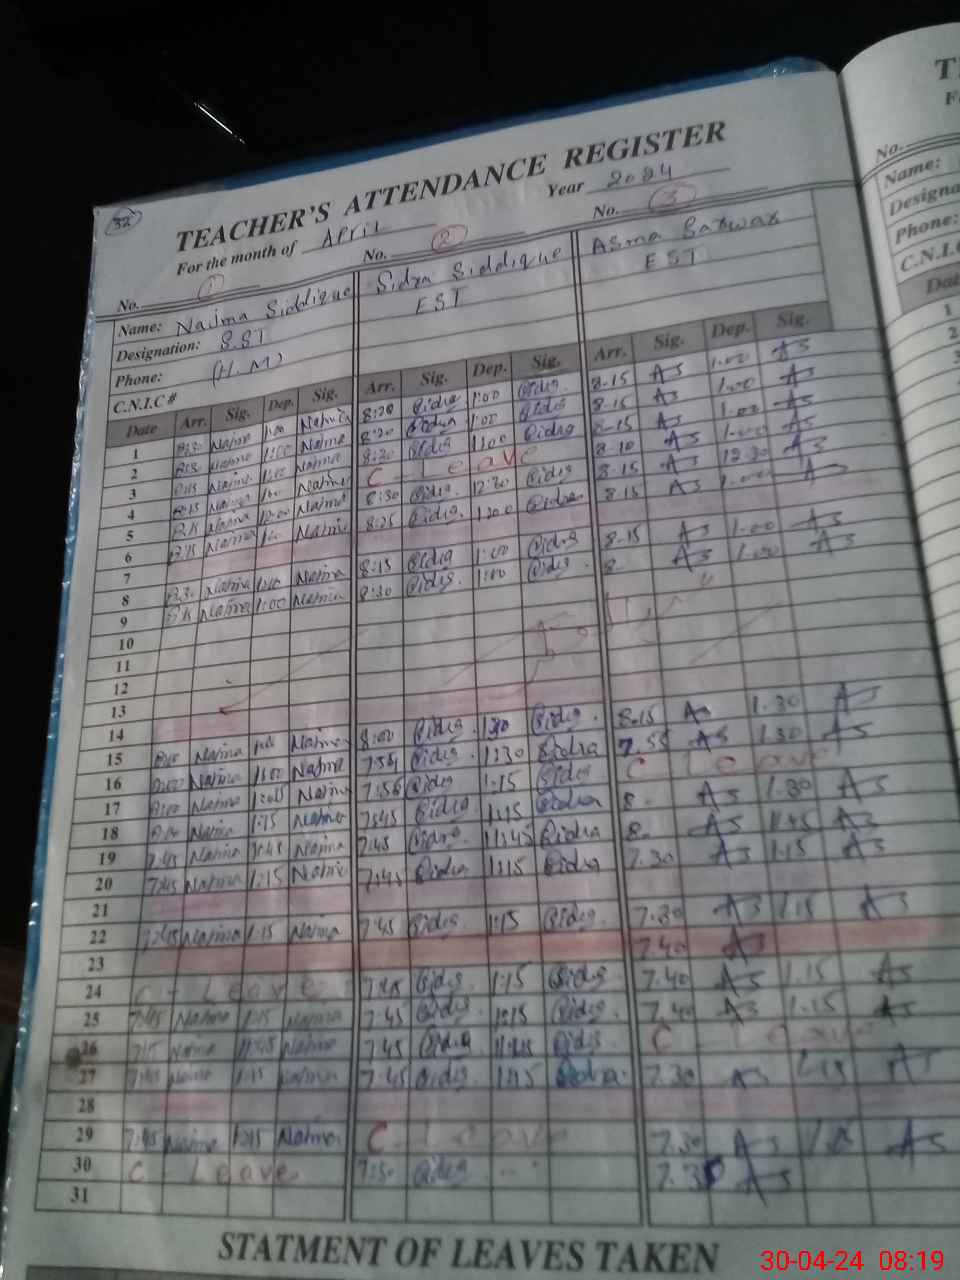 32
TEACHER'S ATTENDANCE REGISTER
For the month of April Year 2024
No. 1 No. 2 No. 3
Name: Naima Siddique Sidra Siddique Asma Batwax
Designation: S.ST EST EST
Phone: (H.M)
C.N.I.C #
Date Arr. Sig. Dep. Sig. Arr. Sig. Dep. Sig. Arr. Sig. Dep. Sig.
1 8:30 Naima 1:00 Naima 8:20 Sidra 1:00 Sidra 8-15 AS 1.00 AS
2 Naima 1:00 Naima 8:20 Sidra 1:00 Sidra 8-15 AS 1.00 AS
3 8:15 Naima 1:00 Naima 8:20 Sidra 1:00 Sidra 8-15 AS 1.00 AS
4 8:15 Naima Naima C - Leave 8-10 AS 1.00 AS
5 8:15 Naima 12:00 Naima 8:30 Sidra 12:30 Sidra 8-15 AS 12.30 AS
6 8:15 Naima 1:00 Naima 8:25 Sidra 1:00 Sidra 8.15 AS AS
7
8 8:30 Naima 1:00 Naima 8:15 Sidra 1:00 Sidra 8-15 AS 1.00 AS
9 8:15 Naima 1:00 Naima 8:30 Sidra 1:00 Sidra 8- AS 1.00 AS
10
11
12
13
14
15 Naima Naima 8:00 Sidra 1:30 Sidra 8.15 AS 1.30 AS
16 8:00 Naima 1:00 Naima 7:54 Sidra 1:30 Sidra 7.55 AS 1.30 AS
17 8:00 Naima Naima 7:56 Sidra 1:15 Sidra C Leave
18 Naima 1:15 Naima 7:45 Sidra 1:15 Sidra 8- AS 1.30 AS
19 7:45 Naima 11:45 Naima 7:45 Sidra 11:45 Sidra 8- AS 11.45 AS
20 7:45 Naima 1:15 Naima 7:45 Sidra 1:15 Sidra 7.30 AS 1.15 AS
21
22 7:45 Naima 1:15 Naima 7:45 Sidra 1:15 Sidra 7.30 AS 1.15 AS
23 7.40 AS
24 C - Leave 7:45 Sidra 1:15 Sidra 7.40 AS 1.15 AS
25 7:45 Naima 1:15 Naima 7:45 Sidra 1:15 Sidra 7.40 AS 1.15 AS
26 Naima 11:45 Naima 7:45 Sidra 11:45 Sidra C Leave
27 7:45 Naima 1:15 Naima 7:45 Sidra 1:15 Sidra 7.30 AS 1.15 AS
28
29 7:45 Naima 1:15 Naima C - Leave 7.30 AS AS
30 C - Leave 7:30 Sidra 7.30 AS
31
STATMENT OF LEAVES TAKEN
No.
Name:
Phone:
1
2
30-04-24 08:19